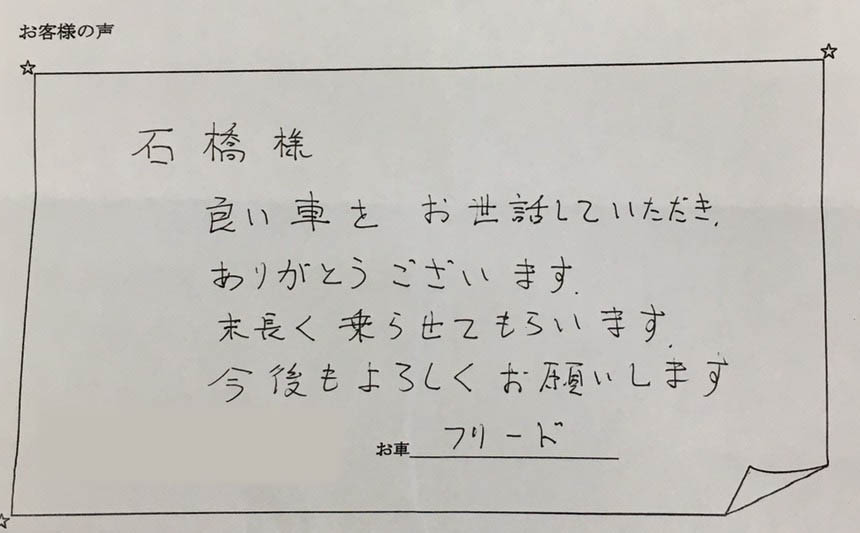 お客様の声
石橋様
良い車を お世話していただき、
ありがとうございます。
末長く乗らせてもらいます。
今後もよろしくお願いします
お車 フリード